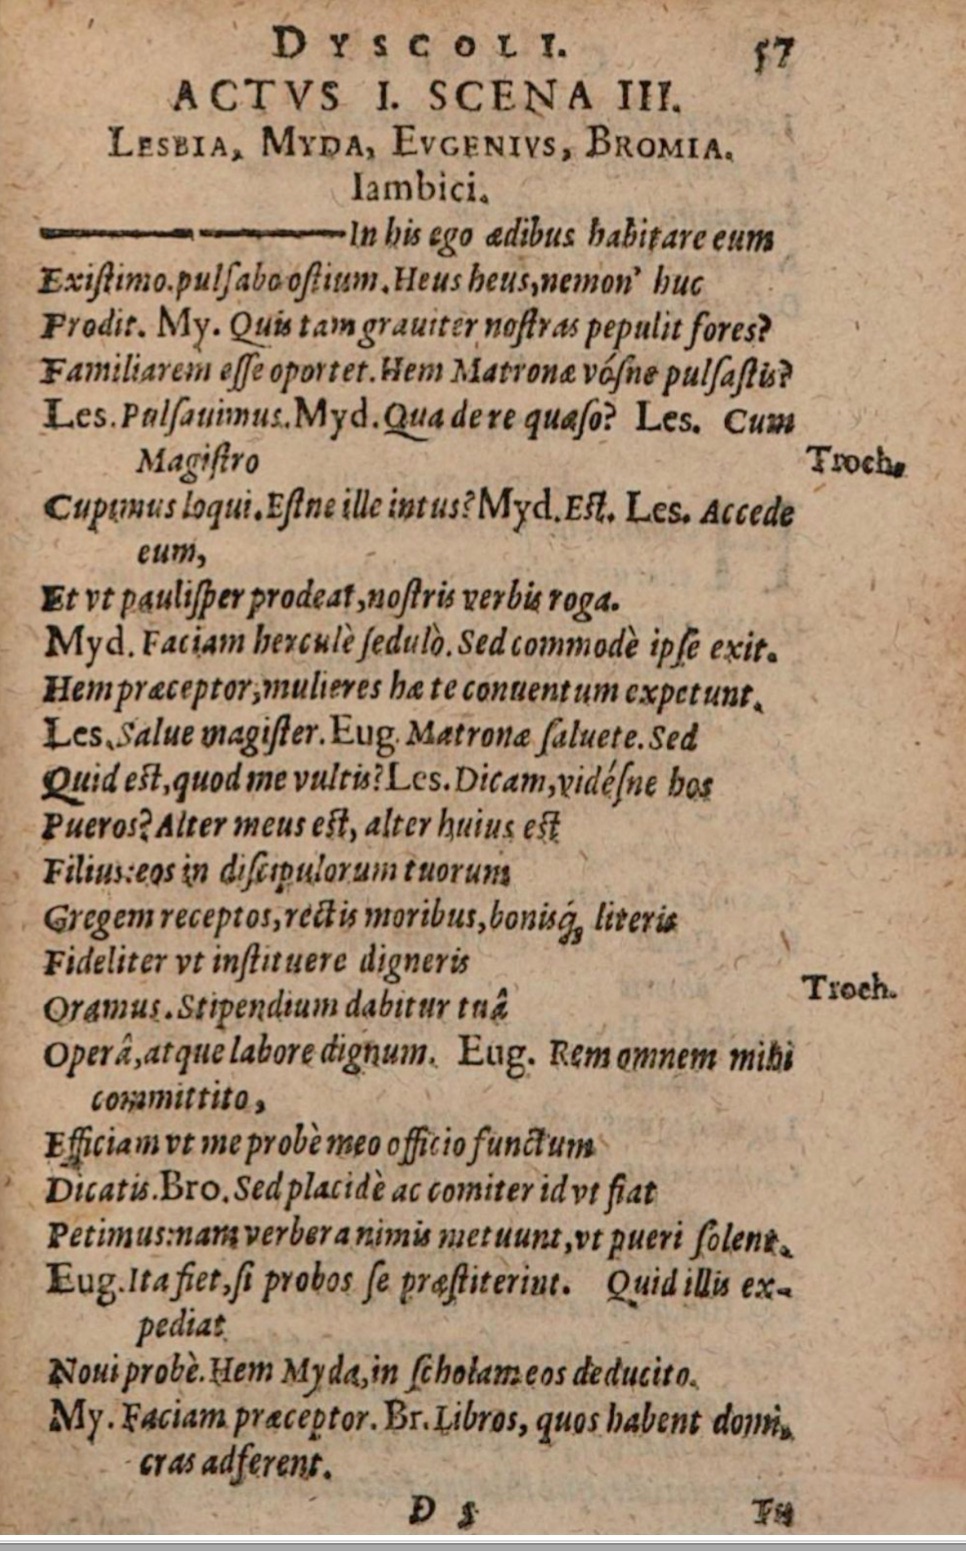 DYSCOLI. 57
ACTVS I. SCENA III.
LESBIA, MYDA, EVGENIVS, BROMIA.
Iambici.
In his ego ædibus habitare eum
Exiſtimo. pulſabo oſtium. Heus heus, nemon' huc
Prodit. My. Quis tam grauiter noſtras pepulit fores?
Familiarem eſſe oportet. Hem Matronæ vóſne pulſaſtis?
Les. Pulſauimus. Myd. Qua de re quæſo? Les. Cum
Magiſtro Troch.
Cupimus loqui. Eſtne ille intus? Myd. Eſt. Les. Accede
eum,
Et vt pauliſper prodeat, noſtris verbis roga.
Myd. Faciam herculè ſedulò. Sed commodè ipſe exit.
Hem præceptor, mulieres hæ te conuentum expetunt.
Les. Salue magiſter. Eug. Matronæ ſaluete. Sed
Quid eſt, quod me vultis? Les. Dicam, vidéſne hos
Pueros? Alter meus eſt, alter huius eſt
Filius: eos in diſcipulorum tuorum
Gregem receptos, rectis moribus, bonisq́; literis
Fideliter vt inſtituere digneris
Oramus. Stipendium dabitur tuâ Troch.
Operâ, atque labore dignum. Eug. Rem omnem mihi
committito,
Efficiam vt me probè meo officio functum
Dicatis. Bro. Sed placidè ac comiter id vt fiat
Petimus: nam verbera nimis metuunt, vt pueri ſolent.
Eug. Ita fiet, ſi probos ſe præſtiterint. Quid illis ex-
pediat
Noui probè. Hem Myda, in ſcholam eos deducito.
My. Faciam præceptor. Br. Libros, quos habent domi,
cras adferent.
D 5